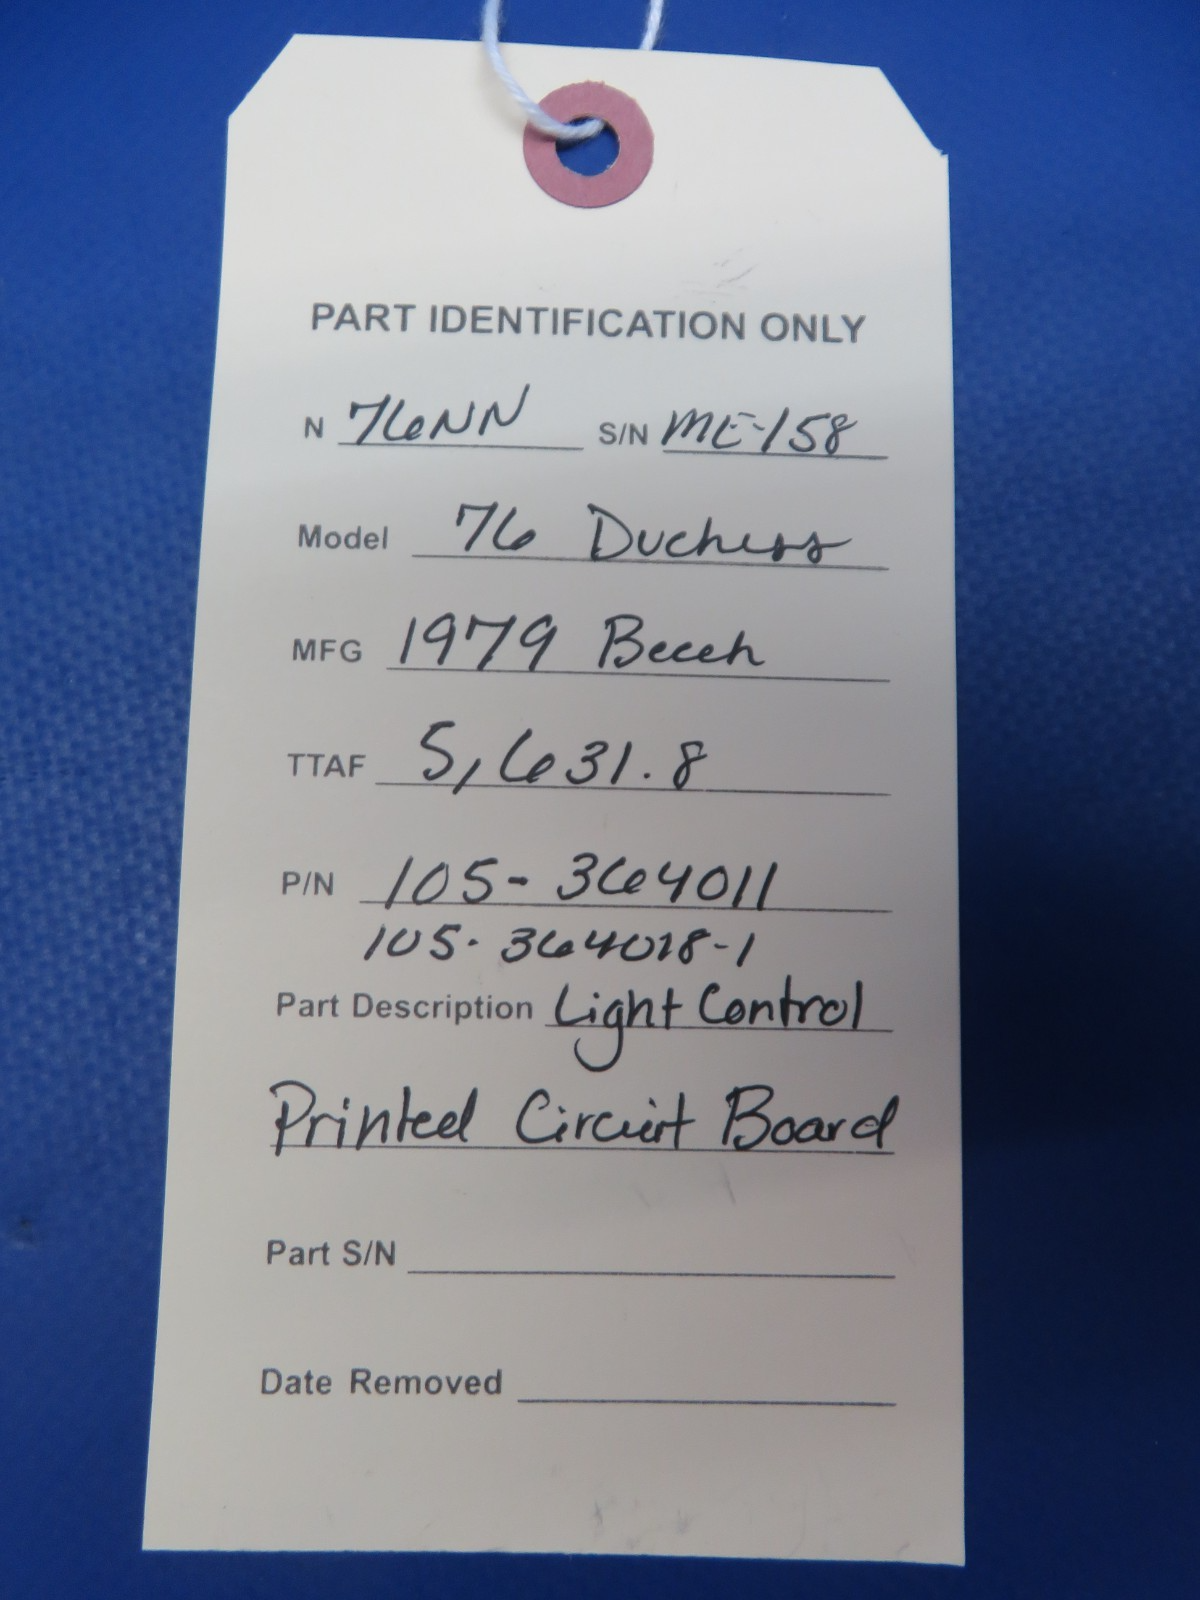 PART IDENTIFICATION ONLY
N 76NN S/N ME-158
Model 76 Duchess
MFG 1979 Beech
TTAF 5,631.8
P/N 105-364011
105-364018-1
Part Description Light Control
Printed Circuit Board
Part S/N
Date Removed